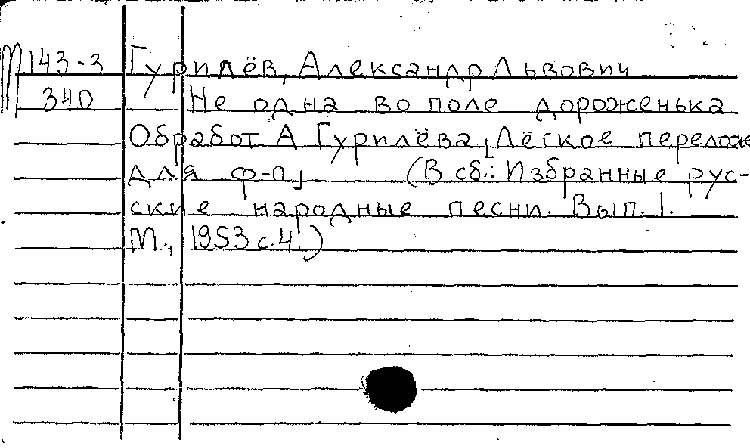 М 143-3 Гурилёв, Александр Львович
340 Не одна во поле дороженька
Обработ. А Гурилёва, Лёгкое перелож
для ф-п, (В сб.: Избранные рус-
ские народные песни. Вып. 1.
М., 1953 с.4.)